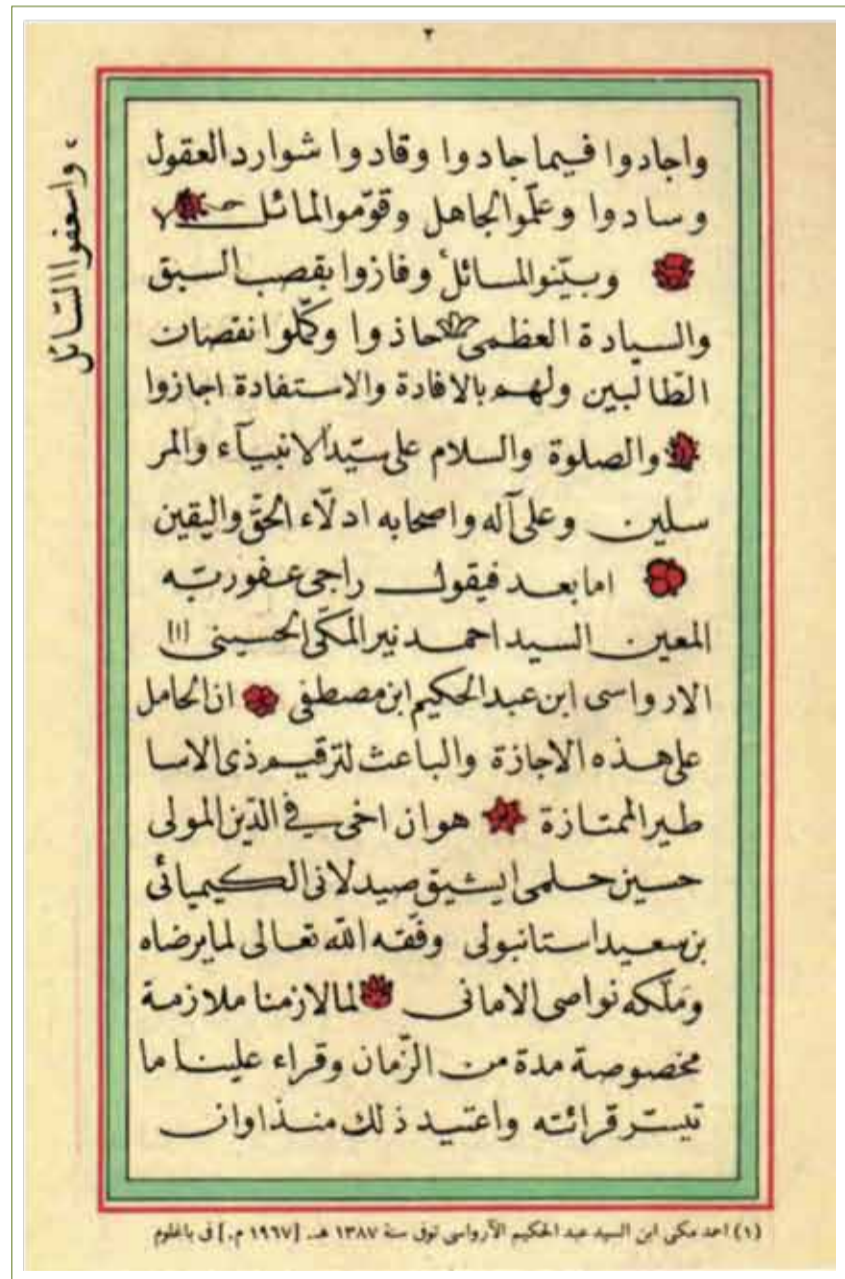 ٢
واجادوا فيما جادوا وقادوا شوارد العقول
وسادوا وعلّموا الجاهل وقوّموا المائل
، واسعفوا السّائل
وبيّنوا المسائل وفازوا بقصب السبق
والسيادة العظمى حاذوا وكمّلوا نقصان
الطّالبين ولهم بالافادة والاستفادة اجازوا
والصلوة والسلام على سيّد الانبيآء والمر
سلين وعلى آله واصحابه ادلّاء الحقّ واليقين
اما بعد فيقول راجى عفو ربّه
المعين السيد احمد نير المكّى الحسينى (١)
الارواسى ابن عبد الحكيم ابن مصطفى ان الحامل
على هذه الاجازة والباعث لترقيم ذى الاسا
طير الممتازة هو ان اخى فى الدّين المولى
حسين حلمى ايشيق صيدلانى الكيميائى
بن سعيد استانبولى وفّقه اللّه تعالى لما يرضاه
وملّكه نواصى الامانى لما لازمنا ملازمة
مخصوصة مدة من الزّمان وقراء علينا ما
تيسّر قرائته واعتيد ذلك منذ اوان
(١) احمد مكى ابن السيد عبد الحكيم الآرواسى توفى سنة ١٣٨٧ هـ. [١٩٦٧ م.] فى باغلوم